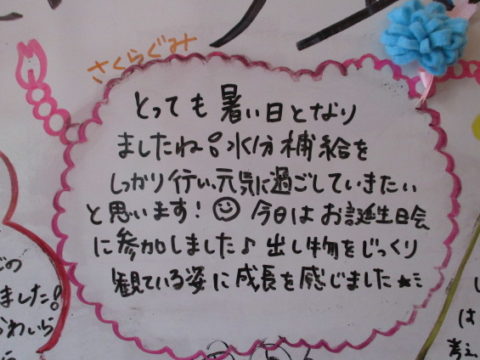 さくらぐみ
とっても暑い日となり
ましたね!水分補給を
しっかり行い、元気に過ごしていきたい
と思います!☺今日はお誕生日会
に参加しました♪出し物をじっくり
観ている姿に成長を感じました★ミ
ました!
は
考え